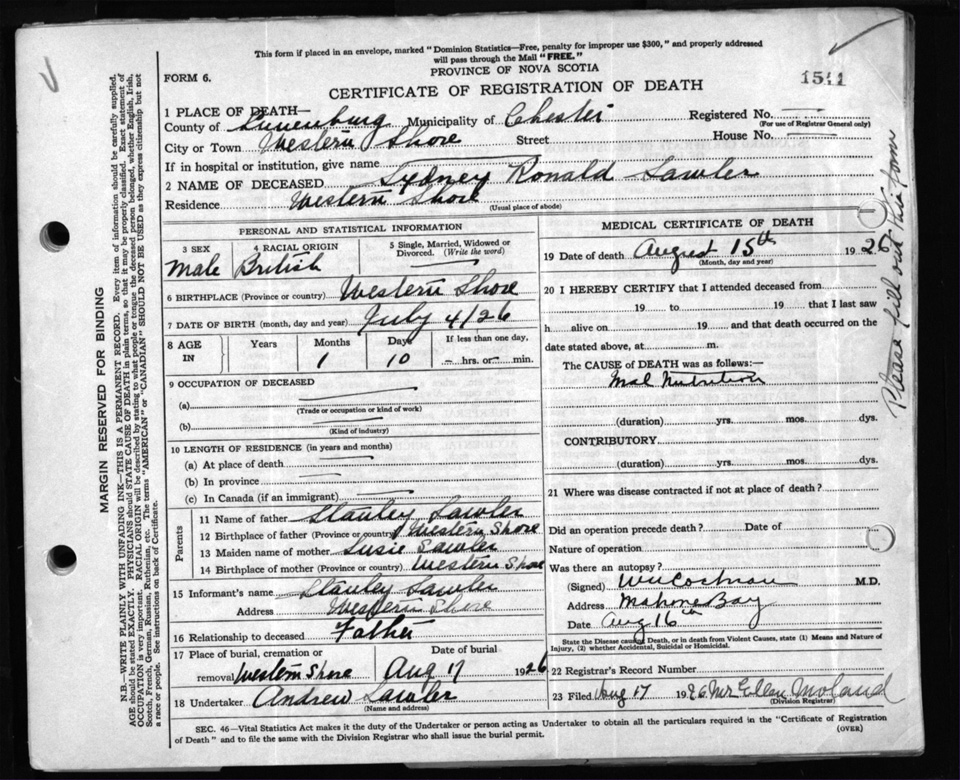 This form if placed in an envelope, marked "Dominion Statistics—Free, penalty for improper use $300," and properly addressed
will pass through the Mail "FREE."
PROVINCE OF NOVA SCOTIA
FORM 6.
1541
CERTIFICATE OF REGISTRATION OF DEATH
1 PLACE OF DEATH—
County of Lunenburg Municipality of Chester Registered No.
(For use of Registrar General only)
City or Town Western Shore Street House No.
If in hospital or institution, give name
2 NAME OF DECEASED Sydney Ronald Sawler
Residence Western Shore
(Usual place of abode)
PERSONAL AND STATISTICAL INFORMATION
3 SEX 4 RACIAL ORIGIN 5 Single, Married, Widowed or
Divorced. (Write the word)
Male British
6 BIRTHPLACE (Province or country) Western Shore
7 DATE OF BIRTH (month, day and year) July 4/26
8 AGE IN Years Months Days If less than one day,
1 10 hrs. or min.
9 OCCUPATION OF DECEASED
(a)
(Trade or occupation or kind of work)
(b)
(Kind of industry)
10 LENGTH OF RESIDENCE (in years and months)
(a) At place of death
(b) In province
(c) In Canada (if an immigrant)
Parents
11 Name of father Stanley Sawler
12 Birthplace of father (Province or country) Western Shore
13 Maiden name of mother Susie Sawler
14 Birthplace of mother (Province or country) Western Shore
15 Informant's name Stanley Sawler
Address Western Shore
16 Relationship to deceased Father
17 Place of burial, cremation or Date of burial
removal Western Shore Aug 17 1926
18 Undertaker Andrew Sawler
(Name and address)
MEDICAL CERTIFICATE OF DEATH
19 Date of death August 15th 1926
(Month, day and year)
20 I HEREBY CERTIFY that I attended deceased from
19 to 19 that I last saw
h alive on 19 and that death occurred on the
date stated above, at m.
The CAUSE OF DEATH was as follows:—
Mal Nutrition
(duration) yrs. mos. dys.
CONTRIBUTORY
(duration) yrs. mos. dys.
21 Where was disease contracted if not at place of death?
Did an operation precede death? Date of
Nature of operation
Was there an autopsy?
(Signed) M.D.
Address Mahone Bay
Date Aug 16th
State the Disease causing Death, or in death from Violent Causes, state (1) Means and Nature of
Injury, (2) whether Accidental, Suicidal or Homicidal.
22 Registrar's Record Number
23 Filed Aug 17 1926 Mrs Ellen
(Division Registrar)
SEC. 46—Vital Statistics Act makes it the duty of the Undertaker or person acting as Undertaker to obtain all the particulars required in the "Certificate of Registration
of Death" and to file the same with the Division Registrar who shall issue the burial permit.
(OVER)
Please fill out this form
MARGIN RESERVED FOR BINDING
N.B.—WRITE PLAINLY WITH UNFADING INK—THIS IS A PERMANENT RECORD. Every item of information should be carefully supplied.
AGE should be stated EXACTLY. PHYSICIANS should STATE CAUSE OF DEATH in plain terms, so that it may be properly classified. Exact statement of
OCCUPATION is very important. RACIAL ORIGIN will be described by stating to what people or tongue the deceased person belonged, whether English, Irish,
Scotch, French, German, Russian, Ruthenian, etc. The terms "AMERICAN" or "CANADIAN" SHOULD NOT BE USED as they express citizenship but not
a race or people. See instructions on back of Certificate.